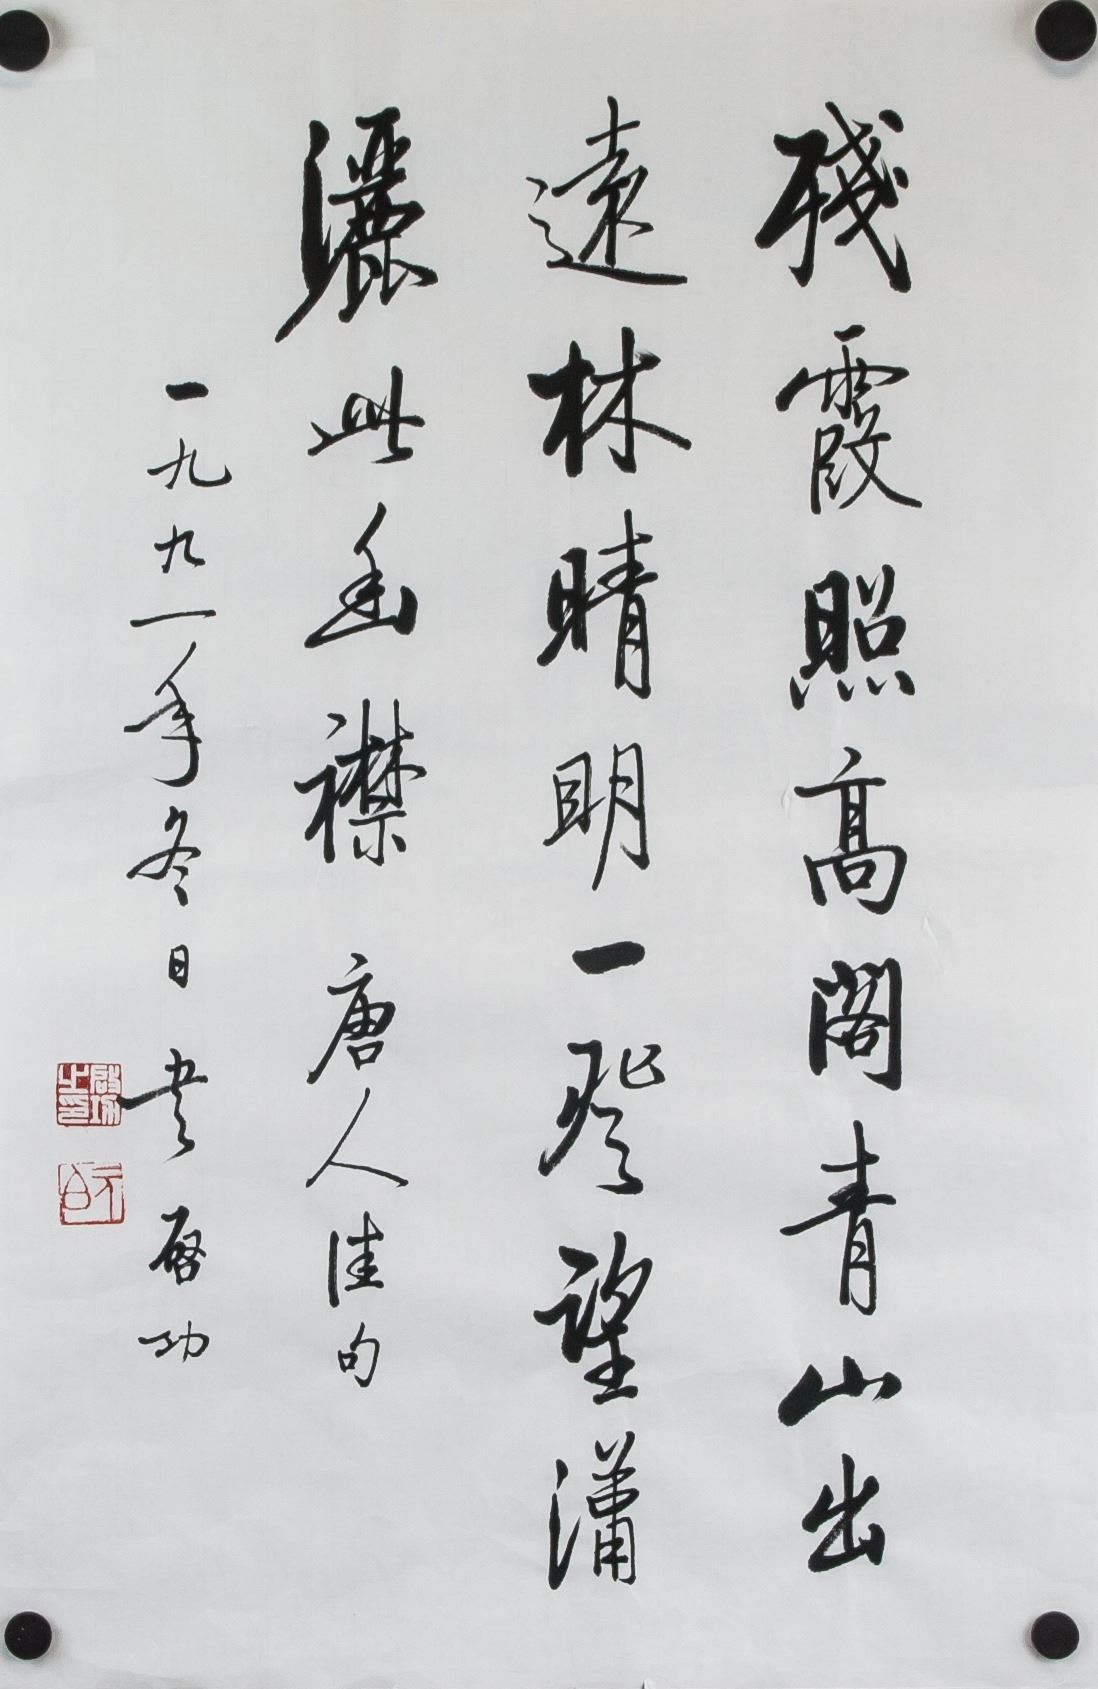 殘霞照高閣青山出
遠林晴明一登望瀟
灑此幽襟 唐人佳句
一九九一年冬日書 啓功
啟功之印
元白